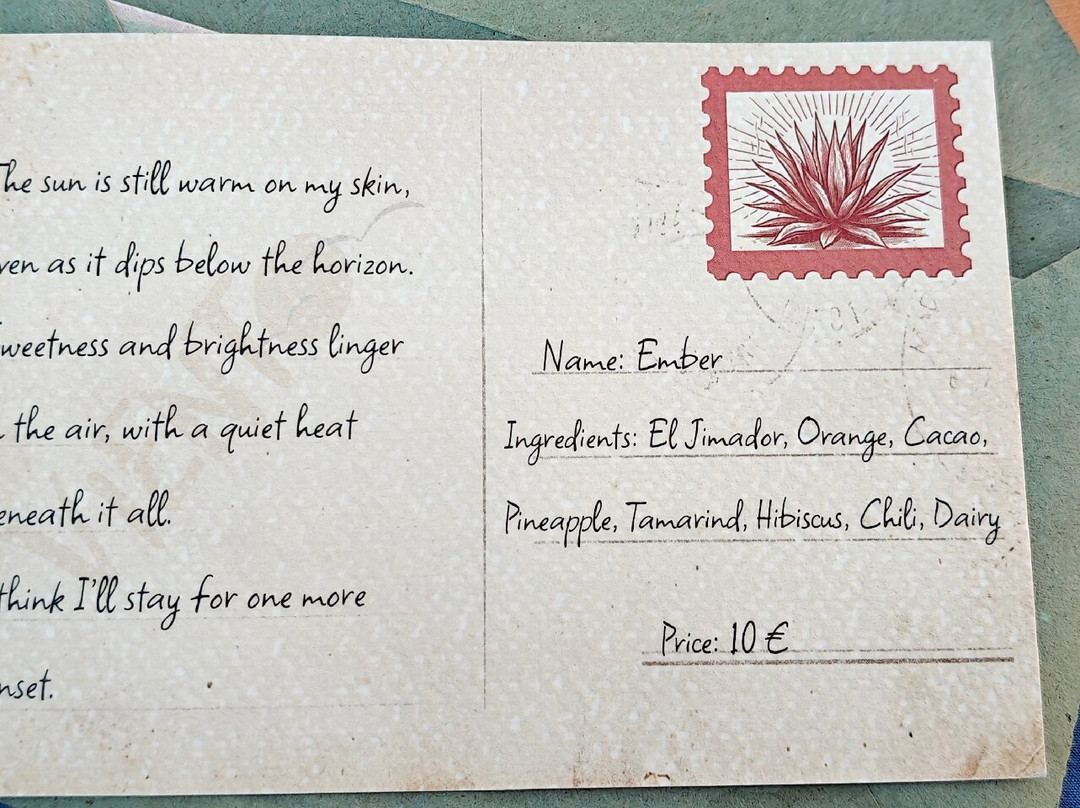 The sun is still warm on my skin,
ven as it dips below the horizon.
weetness and brightness linger
the air, with a quiet heat
eneath it all.
think I'll stay for one more
nset.
Name: Ember
Ingredients: El Jimador, Orange, Cacao,
Pineapple, Tamarind, Hibiscus, Chili, Dairy
Price: 10 €